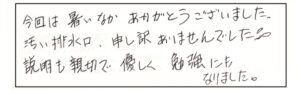 今回は暑いなかありがとうございました。
汚い排水口、申し訳ありませんでした💦
説明も親切で優しく勉強にも
なりました。